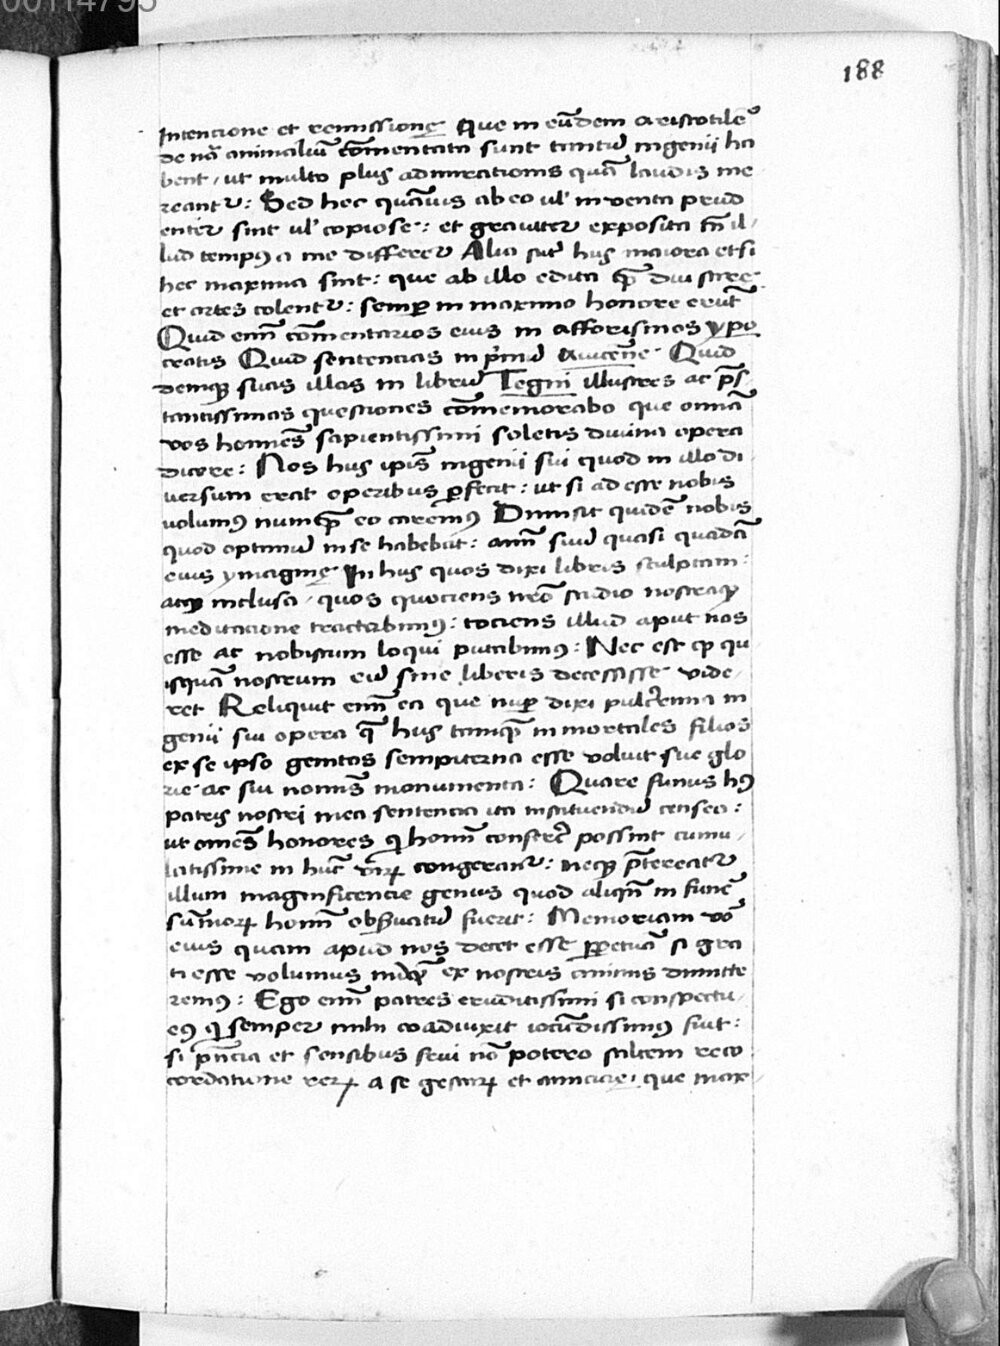 00114795
188
Intencione et remissione Que in eũdem aristotilẽ
de nã animaliũ cõmentata sunt tantũ ingenii ha
bent, ut multo plus admirationis quã laudis me
reantr: Sed hec quãvis ab eo ul inventa prud
enter sint ul copiose: et graviter exposita tñ il,
lud tempus a me differer Alia sut hus maiora etsi
hec maxima sint: que ab illo edita q̃ diu scire
et artes colentr: semper in maximo honore erũt
Quid enĩ cõmentarios eius in afforismos ypo
cratis Quid sentencias in pĩmũ avicẽne Quid
demq suas illas in librũ Tegni illustres ac p̃s,
tantissimas questiones cõmemorabo que omnia
vos homines sapientissimi soletis divina opera
dicere: Nos hus ipĩs ingenii sui quod in illo di
versum erat operibus pfecit: ut si ad esse nobis
volumus numq̃ eo caremus Dimisit quidẽ nobis
quod optimũ in se habebat: anĩ suũ quasi quadã
eius ymagine In hus quos dixi libris sculptam:
atq inclusa, quos quociens nrõ studio nostraq
meditacione tractabimus: tociens illud aput nos
esse ac nobiscum loqui putabimus: Nec est q qu
isquã nostrum eũ sine liberis decessisse vide,
ret Reliquit enĩ ea que nup dixi pulcrima in
genii sui opera q̃ hus tamq̃ inmortales filios
ex se ipso genitos sempiterna esse voluit sue glo
rie ac sui nomĩs monumenta: Quare funus hus
patris nostri mea sentencia ita instituendũ censeo:
ut omẽs honores q homĩ conferri possint cumu,
latissime in hũc congerantr: neq p̃tereatr
illum magnificencie genus quod aliqñ in funẽ
sũmor homĩ obseruatũ fuerit: Memoriam vo
eius quam apud nos decet esse ppetuã si gra
ti esse volumus ex nostris animis dimitte
remus: Ego enĩ patres eruditissimi si conspectu,
eius q semper mihi coadiuxit iocũdissimus fuit:
si p̃ncia et sensibus frui nõ potero saltem reco
cordatione rer a se gestar et amicicie, que max